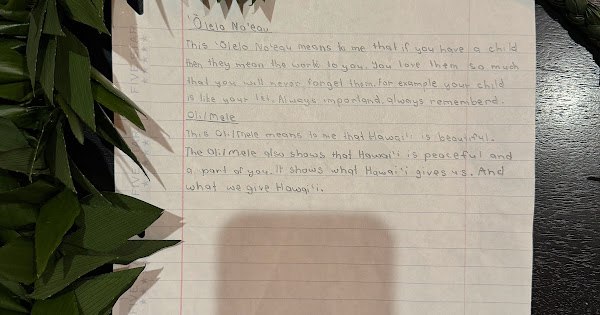 'Ōlelo No'eau
This 'Ōlelo No'eau means to me that if you have a child
then they mean the world to you. You love them so much
that you will never forget them. for example your child
is like your 1st. Always importand, always rememberd.
Oli/Mele
This Oli/Mele means to me that Hawai'i is beautiful.
The Oli/Mele also shows that Hawai'i is peaceful and
a part of you. It shows what Hawai'i gives us. And
what we give Hawai'i.
FIVE STAR